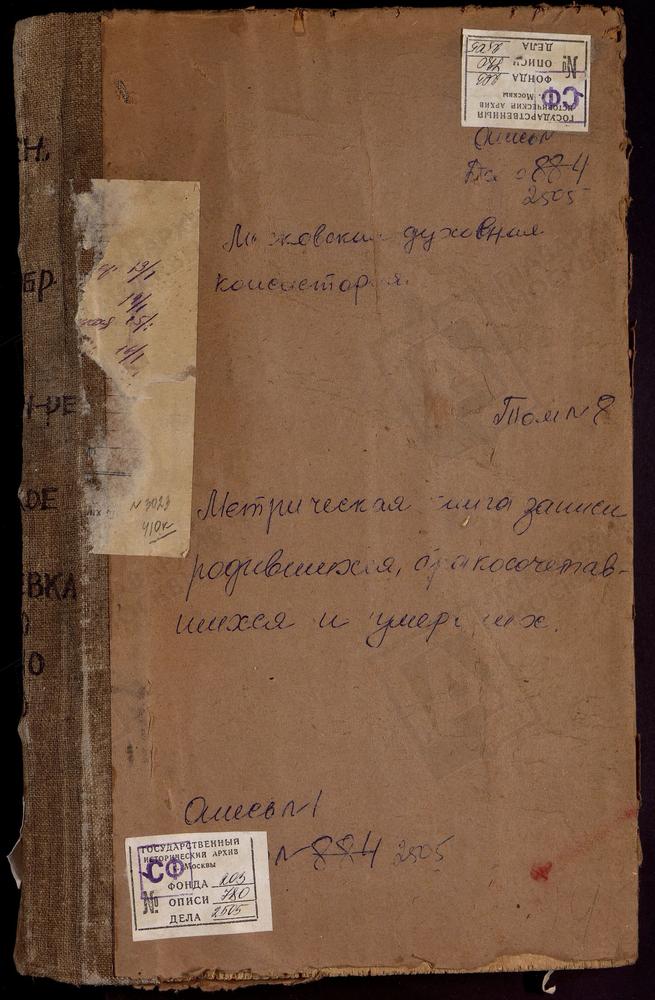 ГОСУДАРСТВЕННЫЙ
ИСТОРИЧЕСКИЙ АРХИВ
г. Москвы
СФ
ФОНДА 203
№ ОПИСИ 780
ДЕЛА 2505
Опись №
884
2505
Московская духовная
консистория.
Том № 8
Метрическая книга записи
родившихся, бракосочетав-
шихся и умерших.
Опись № 1
№ 884 2505
ГОСУДАРСТВЕННЫЙ
ИСТОРИЧЕСКИЙ АРХИВ
г. Москвы
СФ
ФОНДА 203
№ ОПИСИ 780
ДЕЛА 2505
19/1
25/1
14/1
410л
ЕВКА